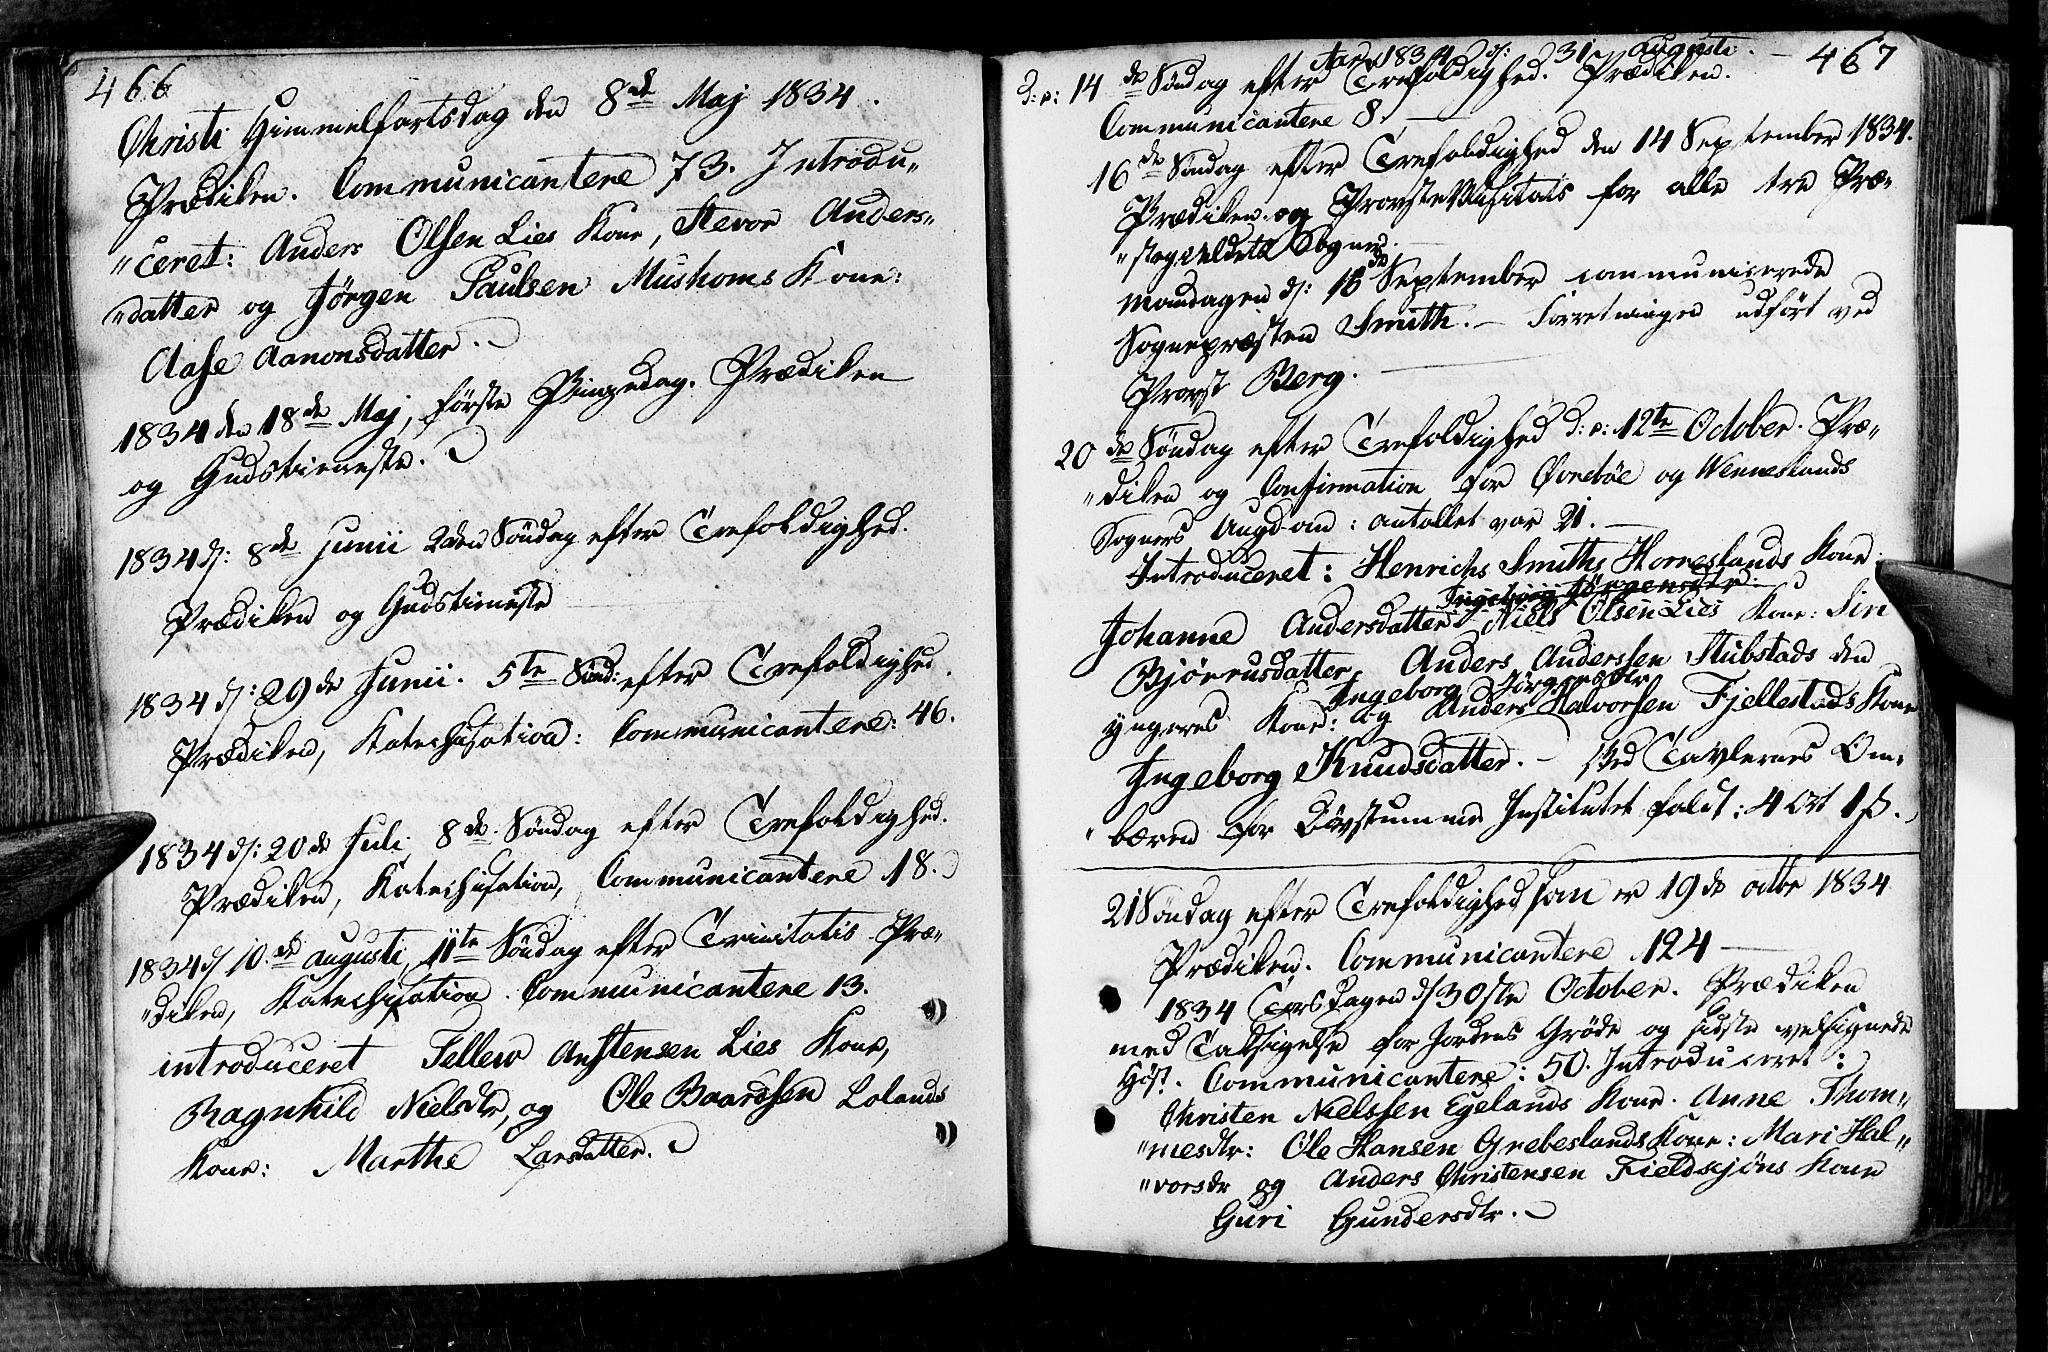 466
Christi Himmelfartsdag den 8de Maj 1834.
Prædiken. Communicantere 73. Introdu„
„ceret: Anders Olsen Lies Kone, Stevor Anders„
„datter og Jørgen Paulsen Mushoms Kone:
Aase Aanonsdatter.
1834 den 18de Maj, første Pinzedag. Prædiken
og Gudstieneste.
1834 d: 8de Junii 2den Søndag efter Trefoldighed.
Prædiken og Gudstieneste
1834 d: 29de Junii. 5te Sønd: efter Trefoldighed.
Prædiken, Katechisation: Communicantere: 46.
1834 d: 20de Juli 8de Søndag efter Trefoldighed.
Prædiken, Katechisation, Communicantere 18.
1834 d 10.de Augusti, 11te Søndag efter Trinitatis Præ„
„diken, Katechisation. Communicantere 13.
introduceret Tellew Anstensen Lies Kone,
Ragnhild Nielsdtr, og Ole Baardsen Lolands
Kone: Marthe Larsdatter.
467
Aar 1834 d: 31 Augusti.
D: e: 14de Søndag efter Trefoldighed. Prædiken.
Communicantere 8.
16de Søndag efter Trefoldighed den 14 September 1834.
Prædiken og ProvsteVisitats for alle tre Præ„
„stegieldets Sogne.
Mandagen d: 15de September communicerede
Sognepræsten Smith. – Forretningen udført ved
Provst Berg.
20de Søndag efter Trefoldighed d: e: 12te October. Præ„
„diken og Confirmation for Øvrebøe og Wenneslands
Sognes Ungdom: antallet var 21.
Introduceret: Henrichs Smiths Horreslands Kone:
Ingeborg Jørgensdtr.
Johanne Andersdatter Niels Olsen Lies Kone: Siri
Bjørnusdatter, Anders Anderssen Stubstads den
Ingeborg Jørgensdtr
yngeres Kone: og Anders Halvorsen Fjellestads Kone
Ingeborg Knudsdatter. – Ved Tavlernes Om„
„bæren for Døvstumme Institutet faldt: 4 Ort 1 ß.
21 Søndag efter Trefoldighed som er 19de octbr 1834
Prædiken. Communicantere 124
1834 Torsdagen d 30ste October. Prædiken
med Taksigelse for Jordens Grøde og sidste velsignede
Høst. Communicantere: 50. Introduceret:
Christen Nielssen Egelands Kone. Anne Thom„
„mesdtr: Ole Hansen Grebeslands Kone: Mari Hal„
„vorsdr og Anders Christensen Fieldsgjøns Kone
Guri Gundersdtr.